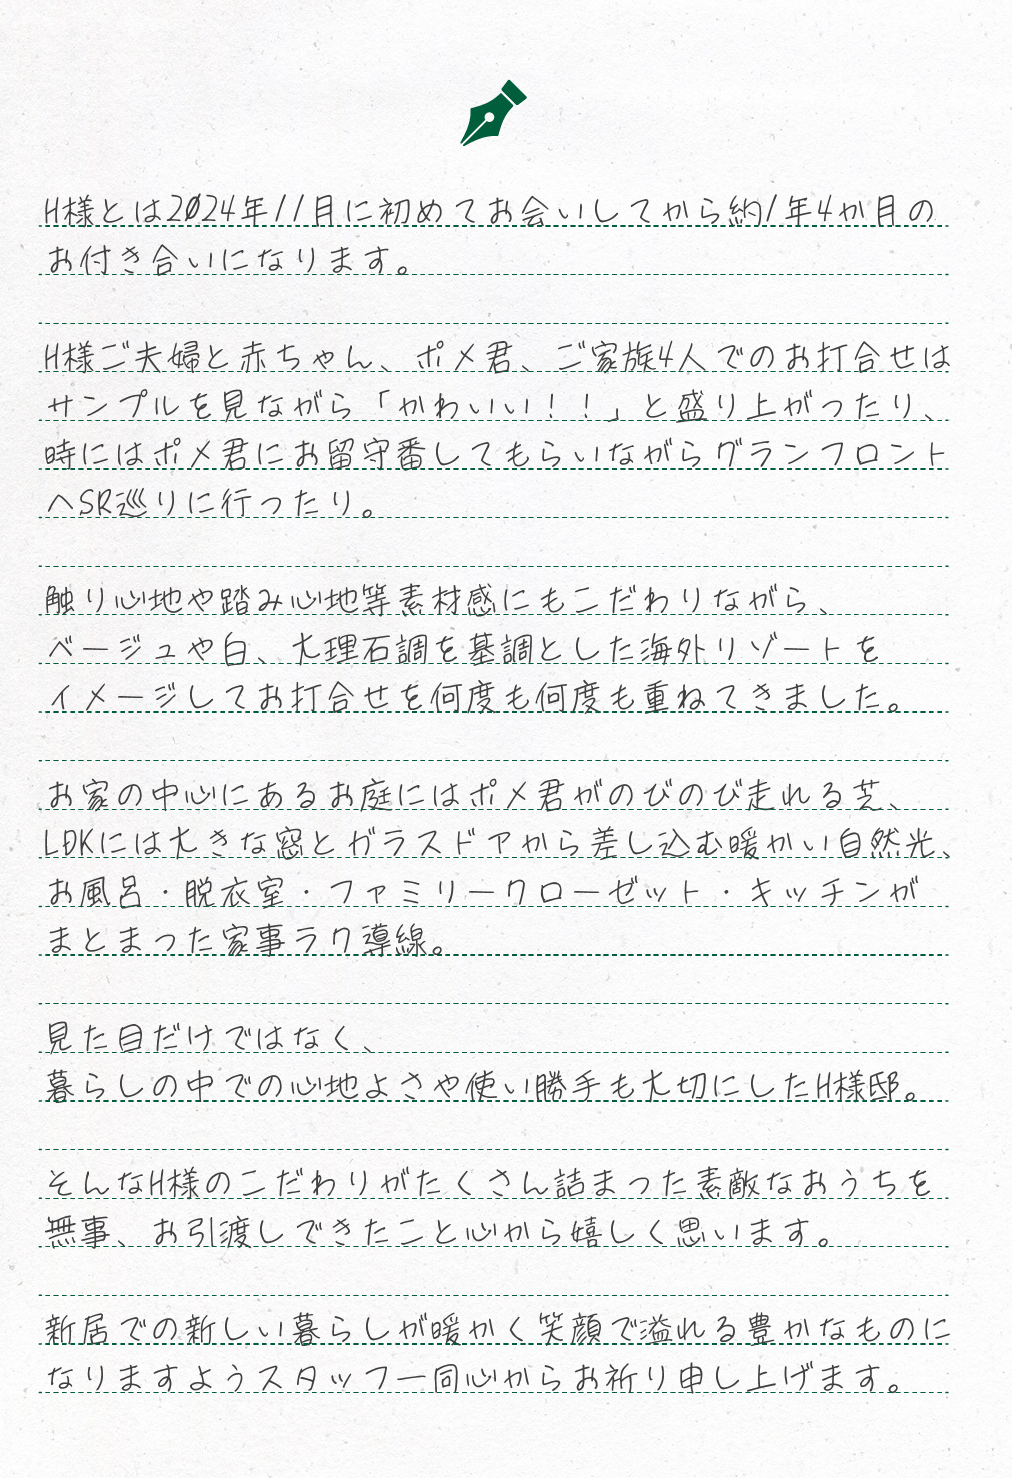 H様とは2024年11月に初めてお会いしてから約1年4か月の
お付き合いになります。
H様ご夫婦と赤ちゃん、ポメ君、ご家族4人でのお打合せは
サンプルを見ながら「かわいい！！」と盛り上がったり、
時にはポメ君にお留守番してもらいながらグランフロント
へSR巡りに行ったり。
触り心地や踏み心地等素材感にもこだわりながら、
ベージュや白、大理石調を基調とした海外リゾートを
イメージしてお打合せを何度も何度も重ねてきました。
お家の中心にあるお庭にはポメ君がのびのび走れる芝、
LDKには大きな窓とガラスドアから差し込む暖かい自然光、
お風呂・脱衣室・ファミリークローゼット・キッチンが
まとまった家事ラク導線。
見た目だけではなく、
暮らしの中での心地よさや使い勝手も大切にしたH様邸。
そんなH様のこだわりがたくさん詰まった素敵なおうちを
無事、お引渡しできたこと心から嬉しく思います。
新居での新しい暮らしが暖かく笑顔で溢れる豊かなものに
なりますようスタッフ一同心からお祈り申し上げます。